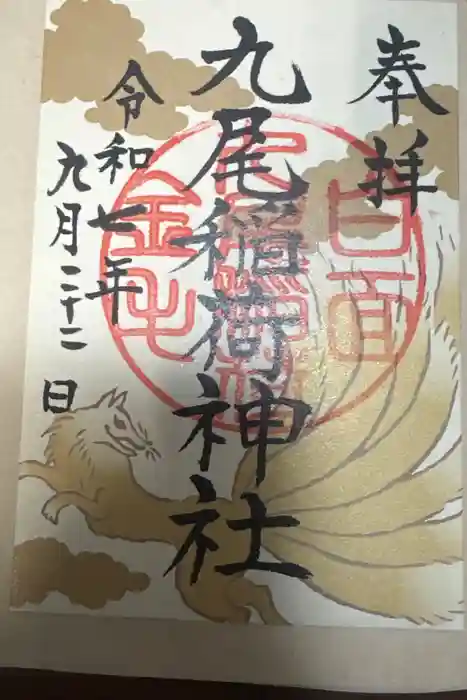 奉拝
九尾稲荷神社
令和七年
九月二十二日
白面
金毛